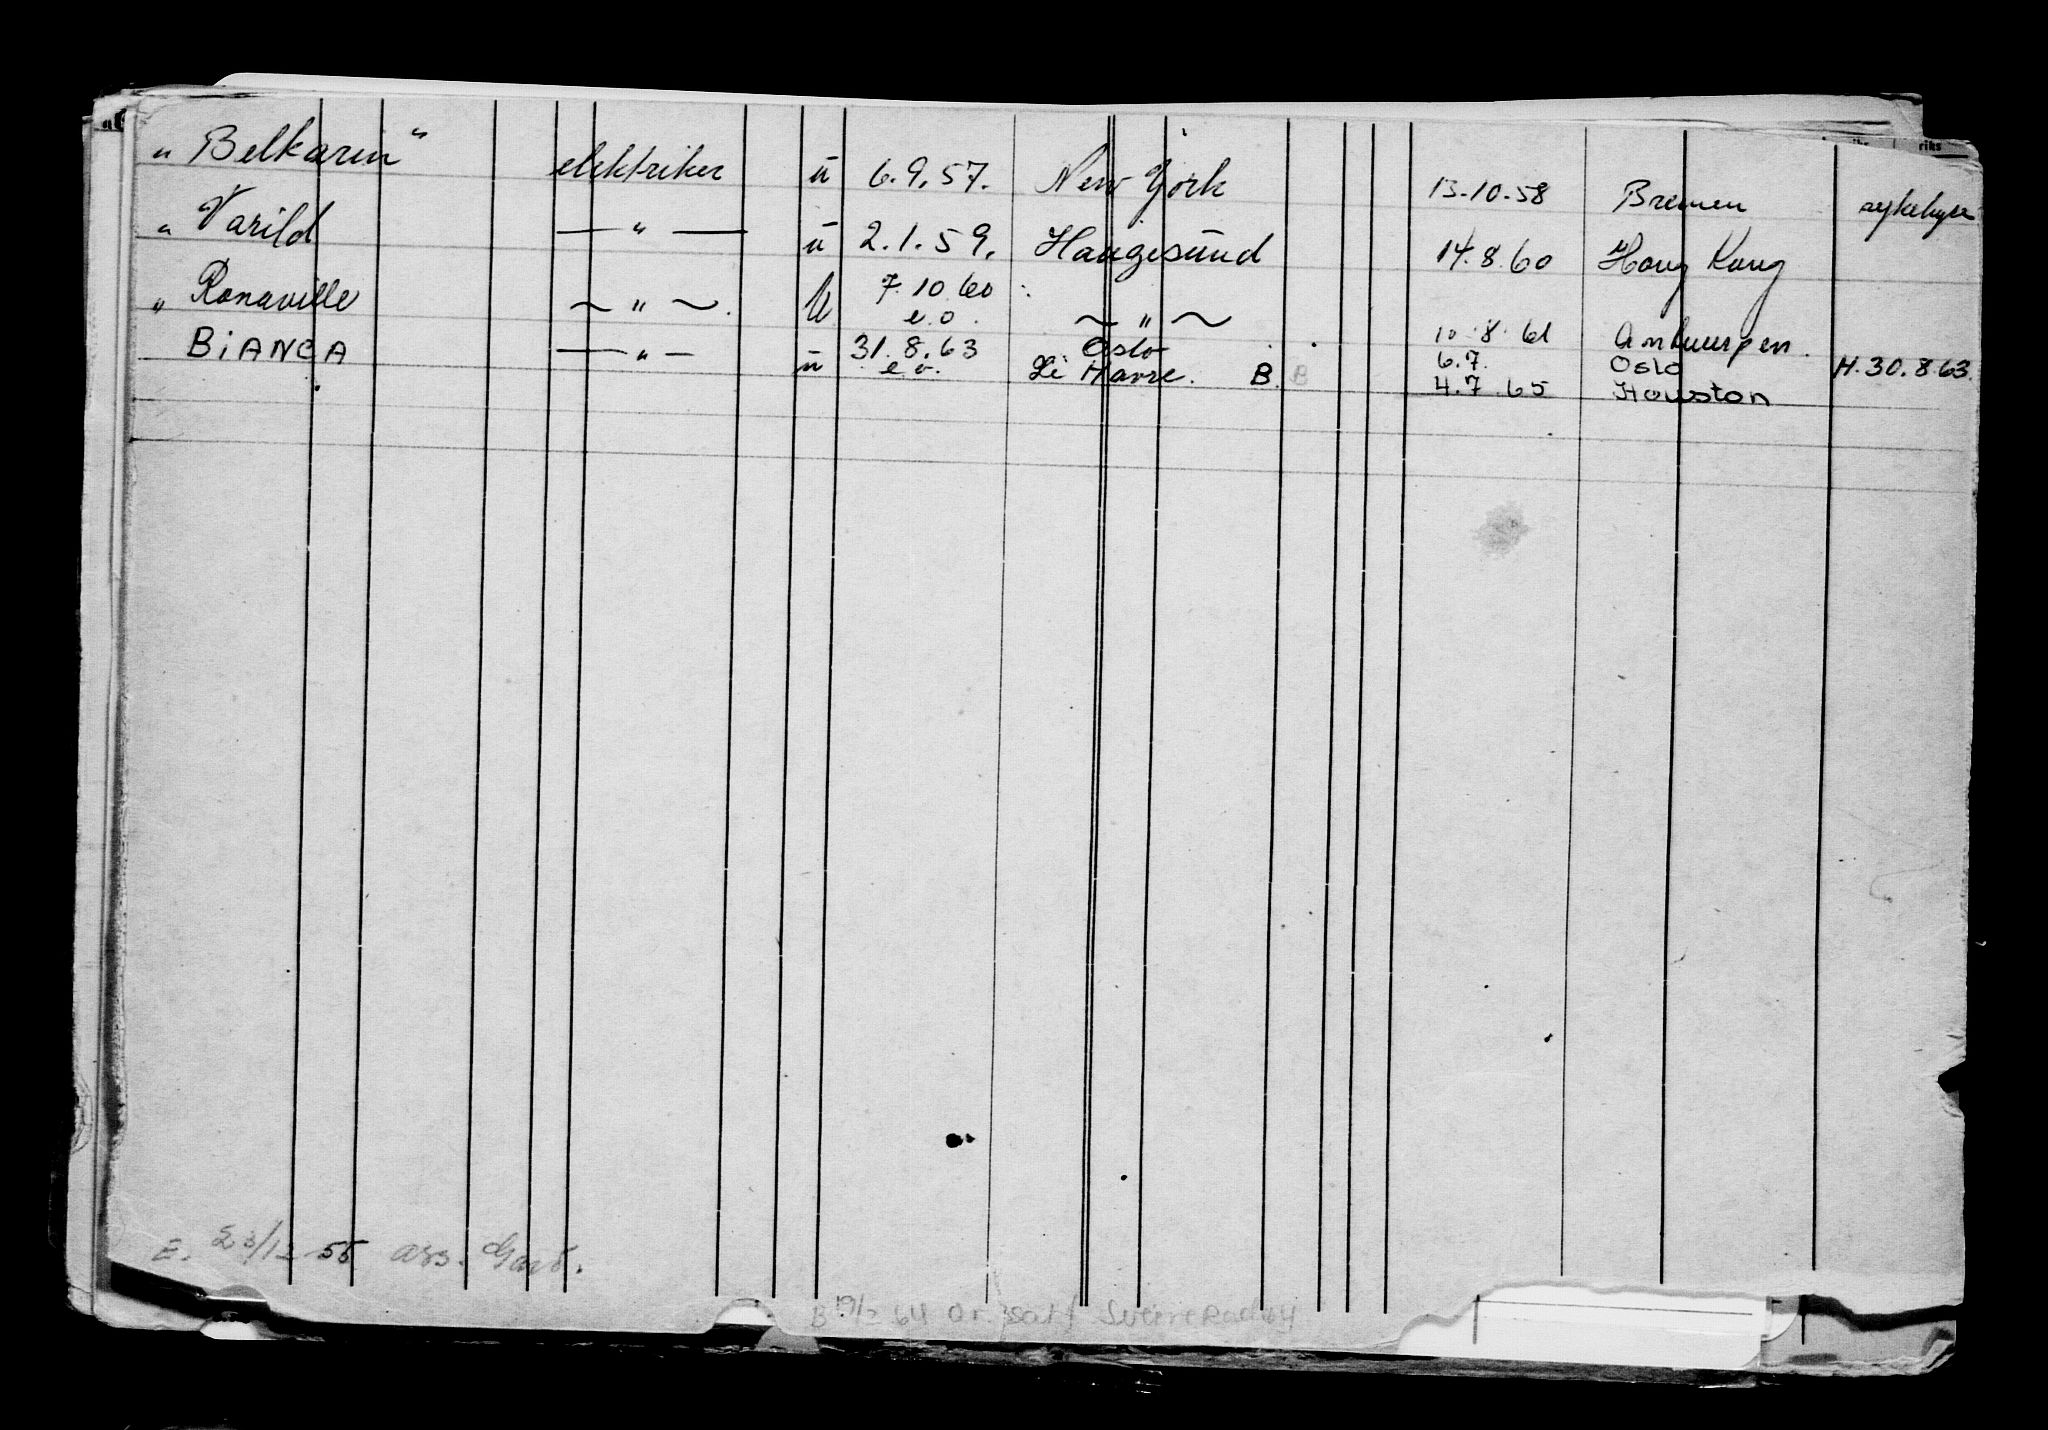 „ Belkarin“ elektriker ü 6.9.57. New York 13.10.58 Bremen sykehus
„ Varild — „ — ü 2.1.59. Haugesünd 14.8.60 Hong Kong
„ Ronaville ~ „ ~. U 7.10.60 e.o. ~ „ ~ 10.8.61 Antwerpen.
BiANCA — „ — ü 31.8.63 e.o. Oslo 6.7. Oslo H.30.8.63.
Le Havre. B. B 4.7.65 Houston
E. 55
B 64 or.
riks